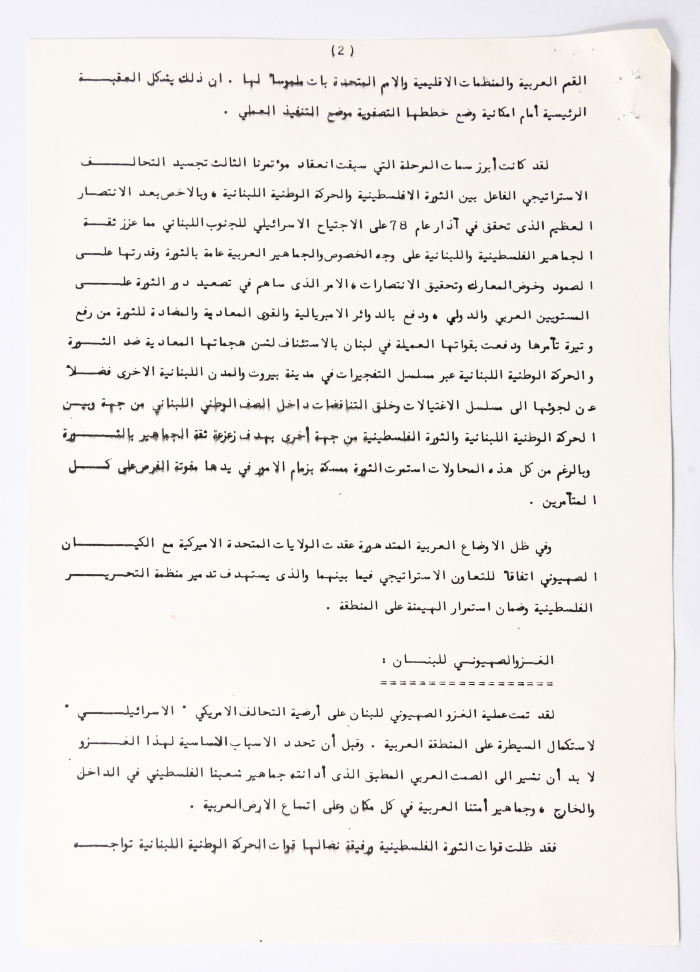 (2)
القمم العربية والمنظمات الاقليمية والامم المتحدة بات ملموسا لها . ان ذلك يشكل العقبة
الرئيسية أمام امكانية وضع خططها التصفوية موضع التنفيذ العملي .
لقد كانت أبرز سمات المرحلة التي سبقت انعقاد مؤتمرنا الثالث تجسيد التحالف
الاستراتيجي الفاعل بين الثورة الفلسطينية والحركة الوطنية اللبنانية ، وبالاخص بعد الانتصار
العظيم الذى تحقق في آذار عام 78 على الاجتياح الاسرائيلي للجنوب اللبناني مما عزز ثقة
الجماهير الفلسطينية واللبنانية على وجه الخصوص والجماهير العربية عامة بالثورة وقدرتها على
الصمود وخوض المعارك وتحقيق الانتصارات ، الامر الذى ساهم في تصعيد دور الثورة على
المستويين العربي والدولي ، ودفع بالدوائر الامبريالية والقوى المعادية والمضادة للثورة من رفع
وتيرة تآمرها ودفعت بقواتها العميلة في لبنان بالاستئناف لشن هجماتها المعادية ضد الثورة
والحركة الوطنية اللبنانية عبر مسلسل التفجيرات في مدينة بيروت والمدن اللبنانية الاخرى فضلا
عن لجوئها الى مسلسل الاغتيالات وخلق التناقضات داخل الصف الوطني اللبناني من جهة وبين
الحركة الوطنية اللبنانية والثورة الفلسطينية من جهة أخرى بهدف زعزعة ثقة الجماهير بالثورة
وبالرغم من كل هذه المحاولات استمرت الثورة ممسكة بزمام الامور في يدها مفوتة الفرص على كل
المتآمرين .
وفي ظل الاوضاع العربية المتدهورة عقدت الولايات المتحدة الاميركية مع الكيان
الصهيوني اتفاقا للتعاون الاستراتيجي فيما بينهما والذى يستهدف تدمير منظمة التحرير
الفلسطينية وضمان استمرار الهيمنة على المنطقة .
الغزو الصهيوني للبنان :
================
لقد تمت عملية الغزو الصهيوني للبنان على أرضية التحالف الامريكي " الاسرائيلي "
لاستكمال السيطرة على المنطقة العربية . وقبل أن نحدد الاسباب الاساسية لهذا الغزو
لا بد أن نشير الى الصمت العربي المطبق الذى أدانته جماهير شعبنا الفلسطيني في الداخل
والخارج ، وجماهير أمتنا العربية في كل مكان وعلى اتساع الارض العربية .
فقد ظلت قوات الثورة الفلسطينية ورفيقة نضالها قوات الحركة الوطنية اللبنانية تواجه